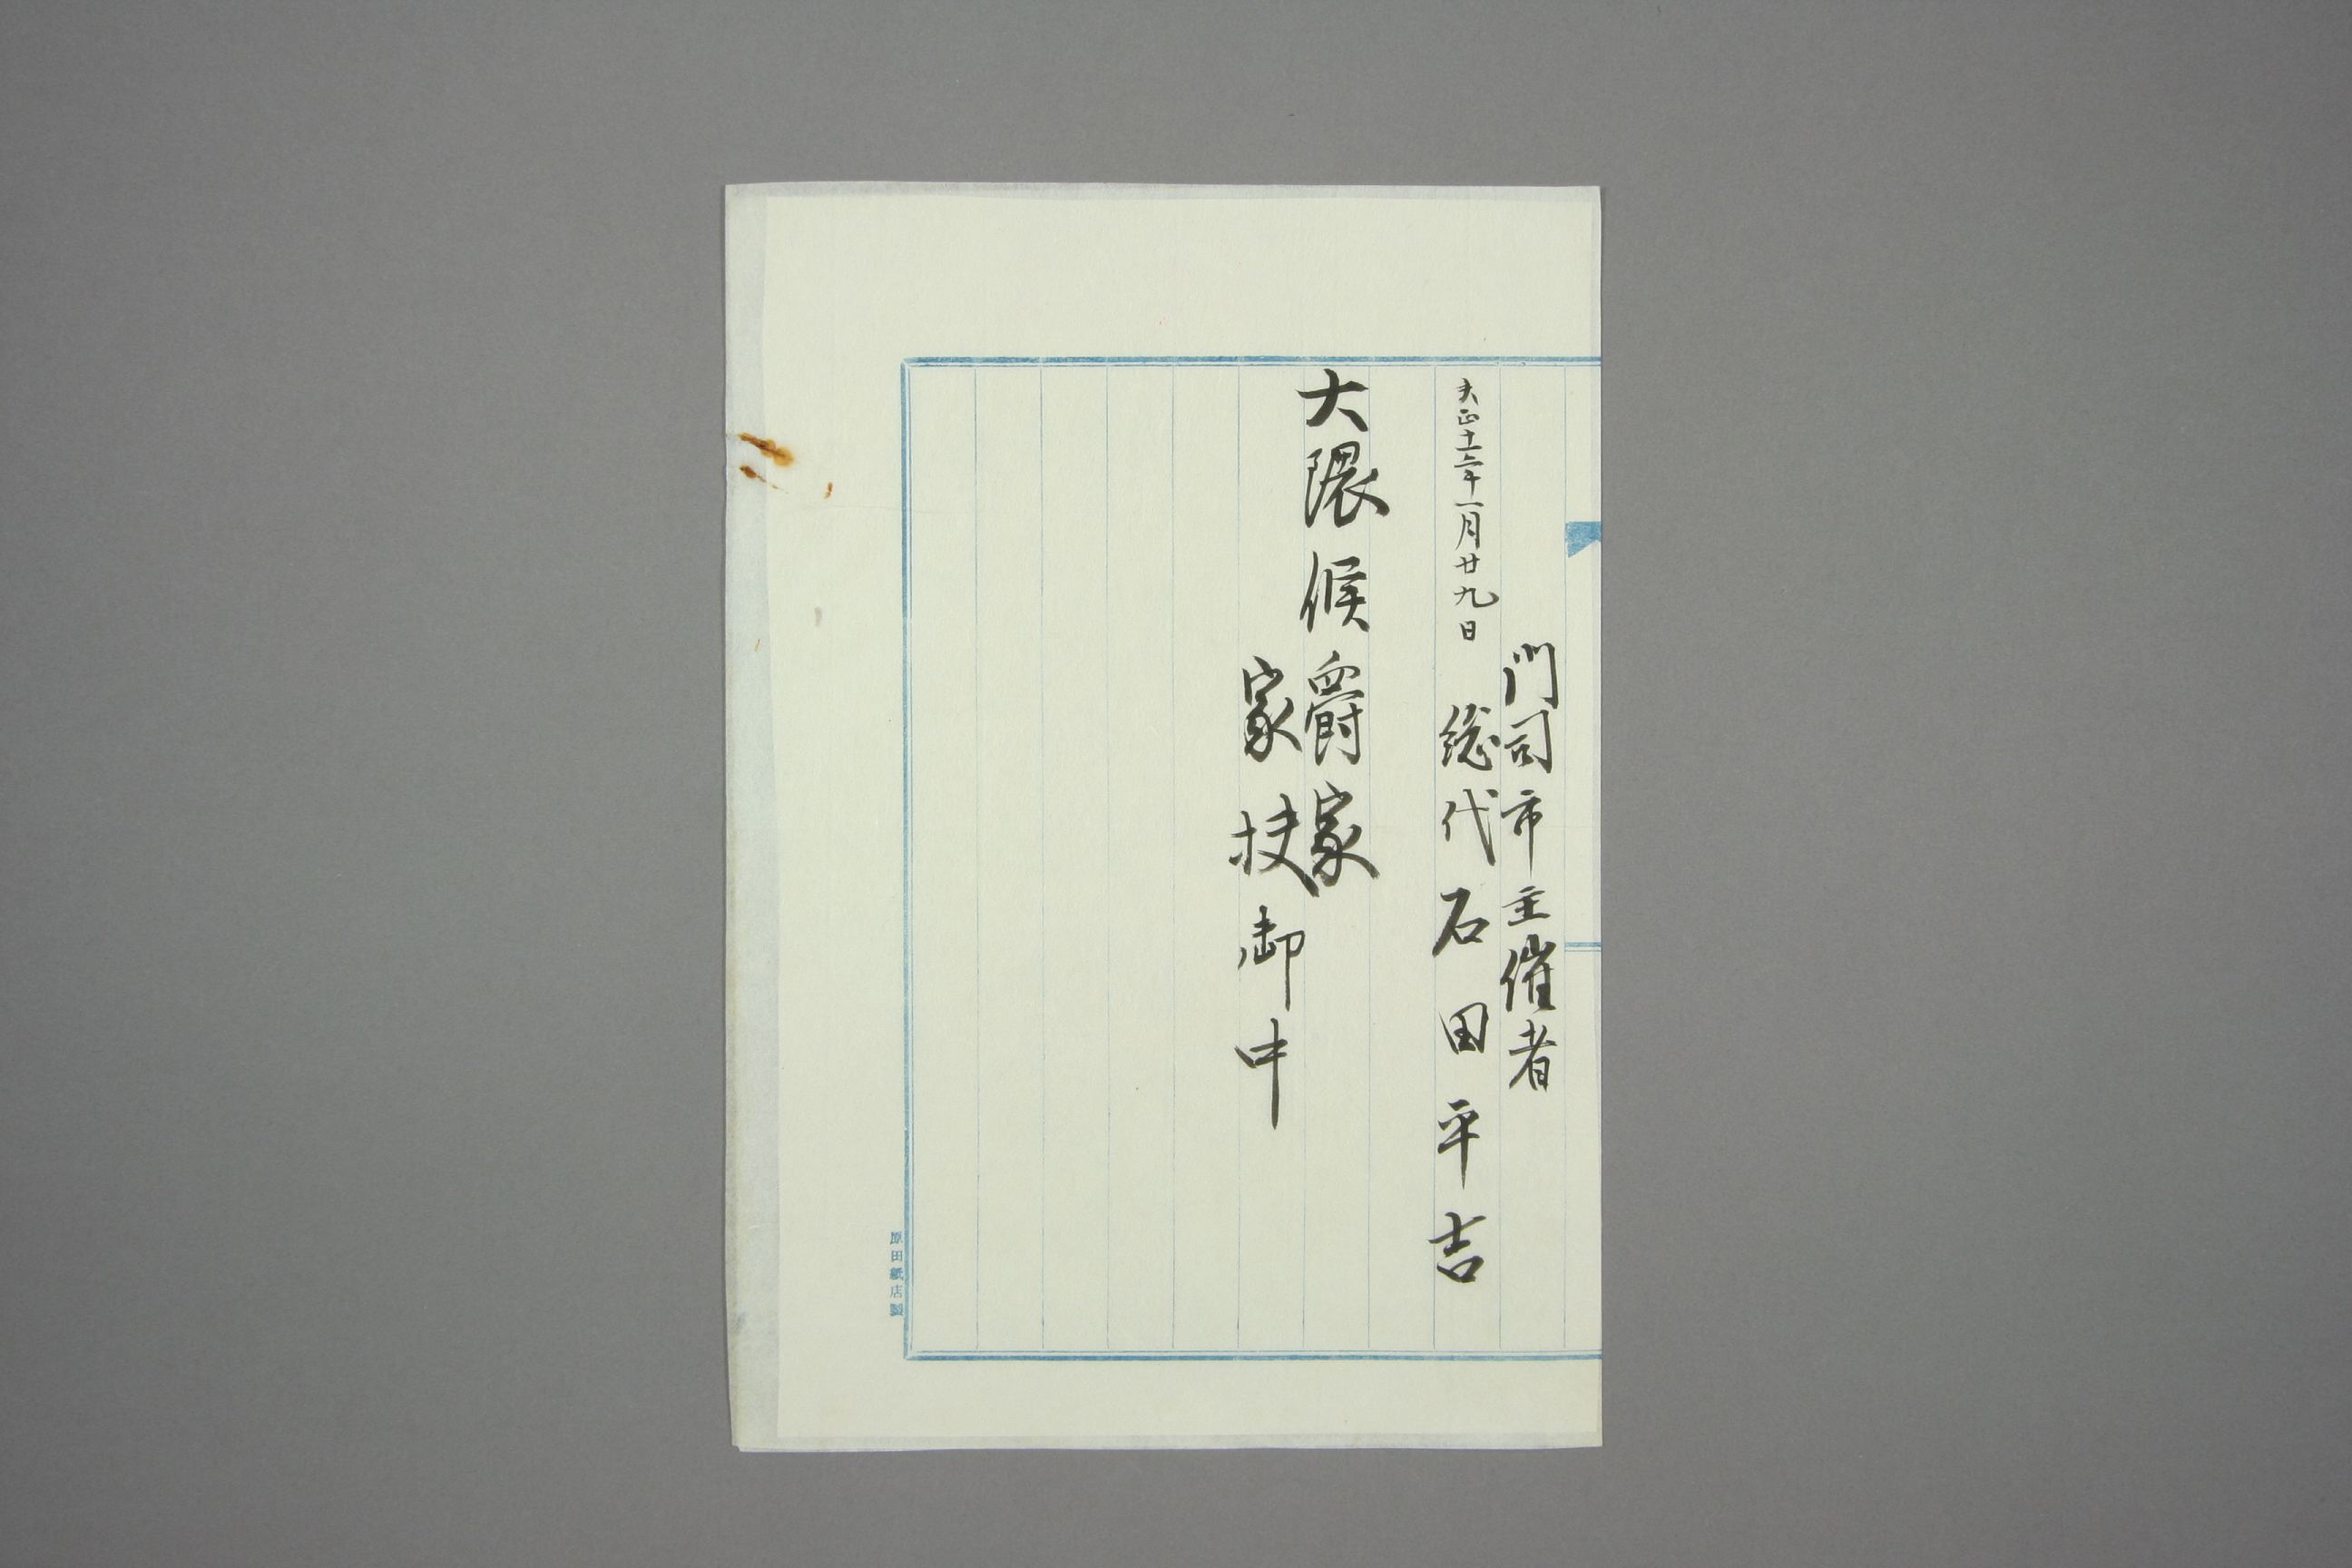 門司市主催者
大正十一年一月廿九日 総代石田平吉
大隈候爵家
家扶御中
原田紙店製